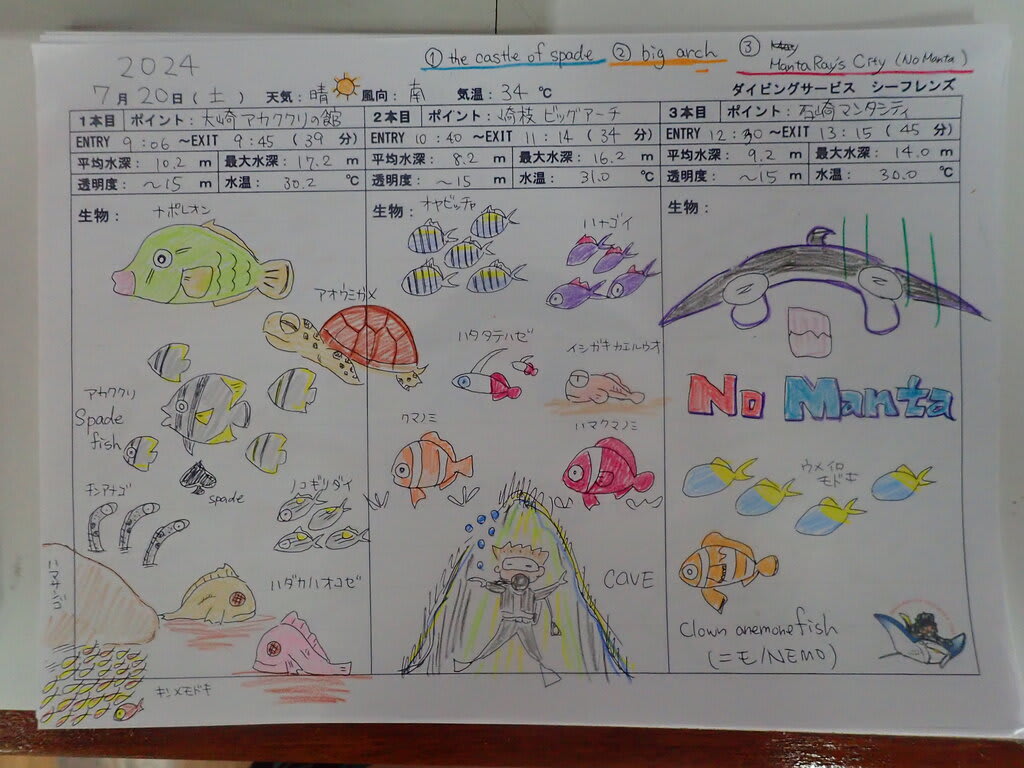 2024
① the castle of spade ② big arch ③ Manta Ray's City (No Manta)
7月20日(土) 天気:晴 風向:南 気温:34℃ ダイビングサービス シーフレンズ
1本目 ポイント:大崎アカククリの館
ENTRY 9:06 ~EXIT 9:45 (39分)
平均水深:10.2 m 最大水深:17.2 m
透明度:~15 m 水温:30.2 ℃
生物:
ナポレオン
アオウミガメ
アカククリ
Spade
fish
spade
チンアナゴ
ノコギリダイ
ハダカハオコゼ
キンメモドキ
2本目 ポイント:崎枝 ビッグアーチ
ENTRY 10:40 ~EXIT 11:14 (34分)
平均水深:8.2 m 最大水深:16.2 m
透明度:~15 m 水温:31.0 ℃
生物:
オヤビッチャ
ハナゴイ
ハタタテハゼ
イシガキカエルウオ
クマノミ
ハマクマノミ
CAVE
3本目 ポイント:石崎マンタシティ
ENTRY 12:30 ~EXIT 13:15 (45分)
平均水深:9.2 m 最大水深:14.0 m
透明度:~15 m 水温:30.0 ℃
生物:
No Manta
ウメイロ
モドキ
Clown anemonefish
(=モ/NEMO)